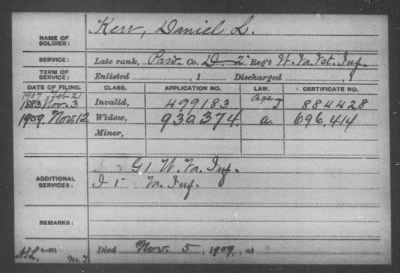 NAME OF SOLDIER: Kerr, Daniel L.
SERVICE: Late rank, Priv. Co. D. 2 Reg't W. Va. Vet. Inf.
TERM OF SERVICE: Enlisted , 1 Discharged , 1
DATE OF FILING. CLASS. APPLICATION NO. LAW. CERTIFICATE NO.
1883 Nov. 3 Invalid, 499183 884428
1909 Nov. 12 Widow, 939374 696.414
Minor,
ADDITIONAL SERVICES: G 1 W. Va. Inf.
I 1" Va. Inf.
REMARKS:
Died Nov. 5, 1909, at